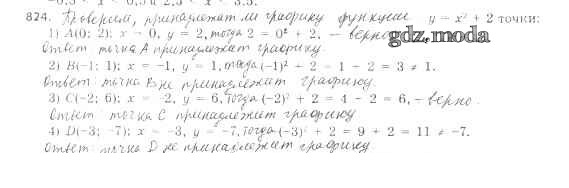 -0,5 < x < 0,5 и 2,5 < x < 3,5.
824. Проверим, принадлежат ли графику функции y = x² + 2 точки:
1) A(0; 2); x = 0, y = 2, тогда 2 = 0² + 2, – верно
gdz.moda
Ответ: точка A принадлежит графику.
2) B(-1; 1); x = -1, y = 1, тогда (-1)² + 2 = 1 + 2 = 3 ≠ 1.
Ответ: точка B не принадлежит графику.
3) C(-2; 6); x = -2, y = 6, тогда (-2)² + 2 = 4 + 2 = 6, – верно.
Ответ: точка C принадлежит графику
4) D(-3; -7); x = -3, y = -7, тогда (-3)² + 2 = 9 + 2 = 11 ≠ -7.
Ответ: точка D не принадлежит графику.